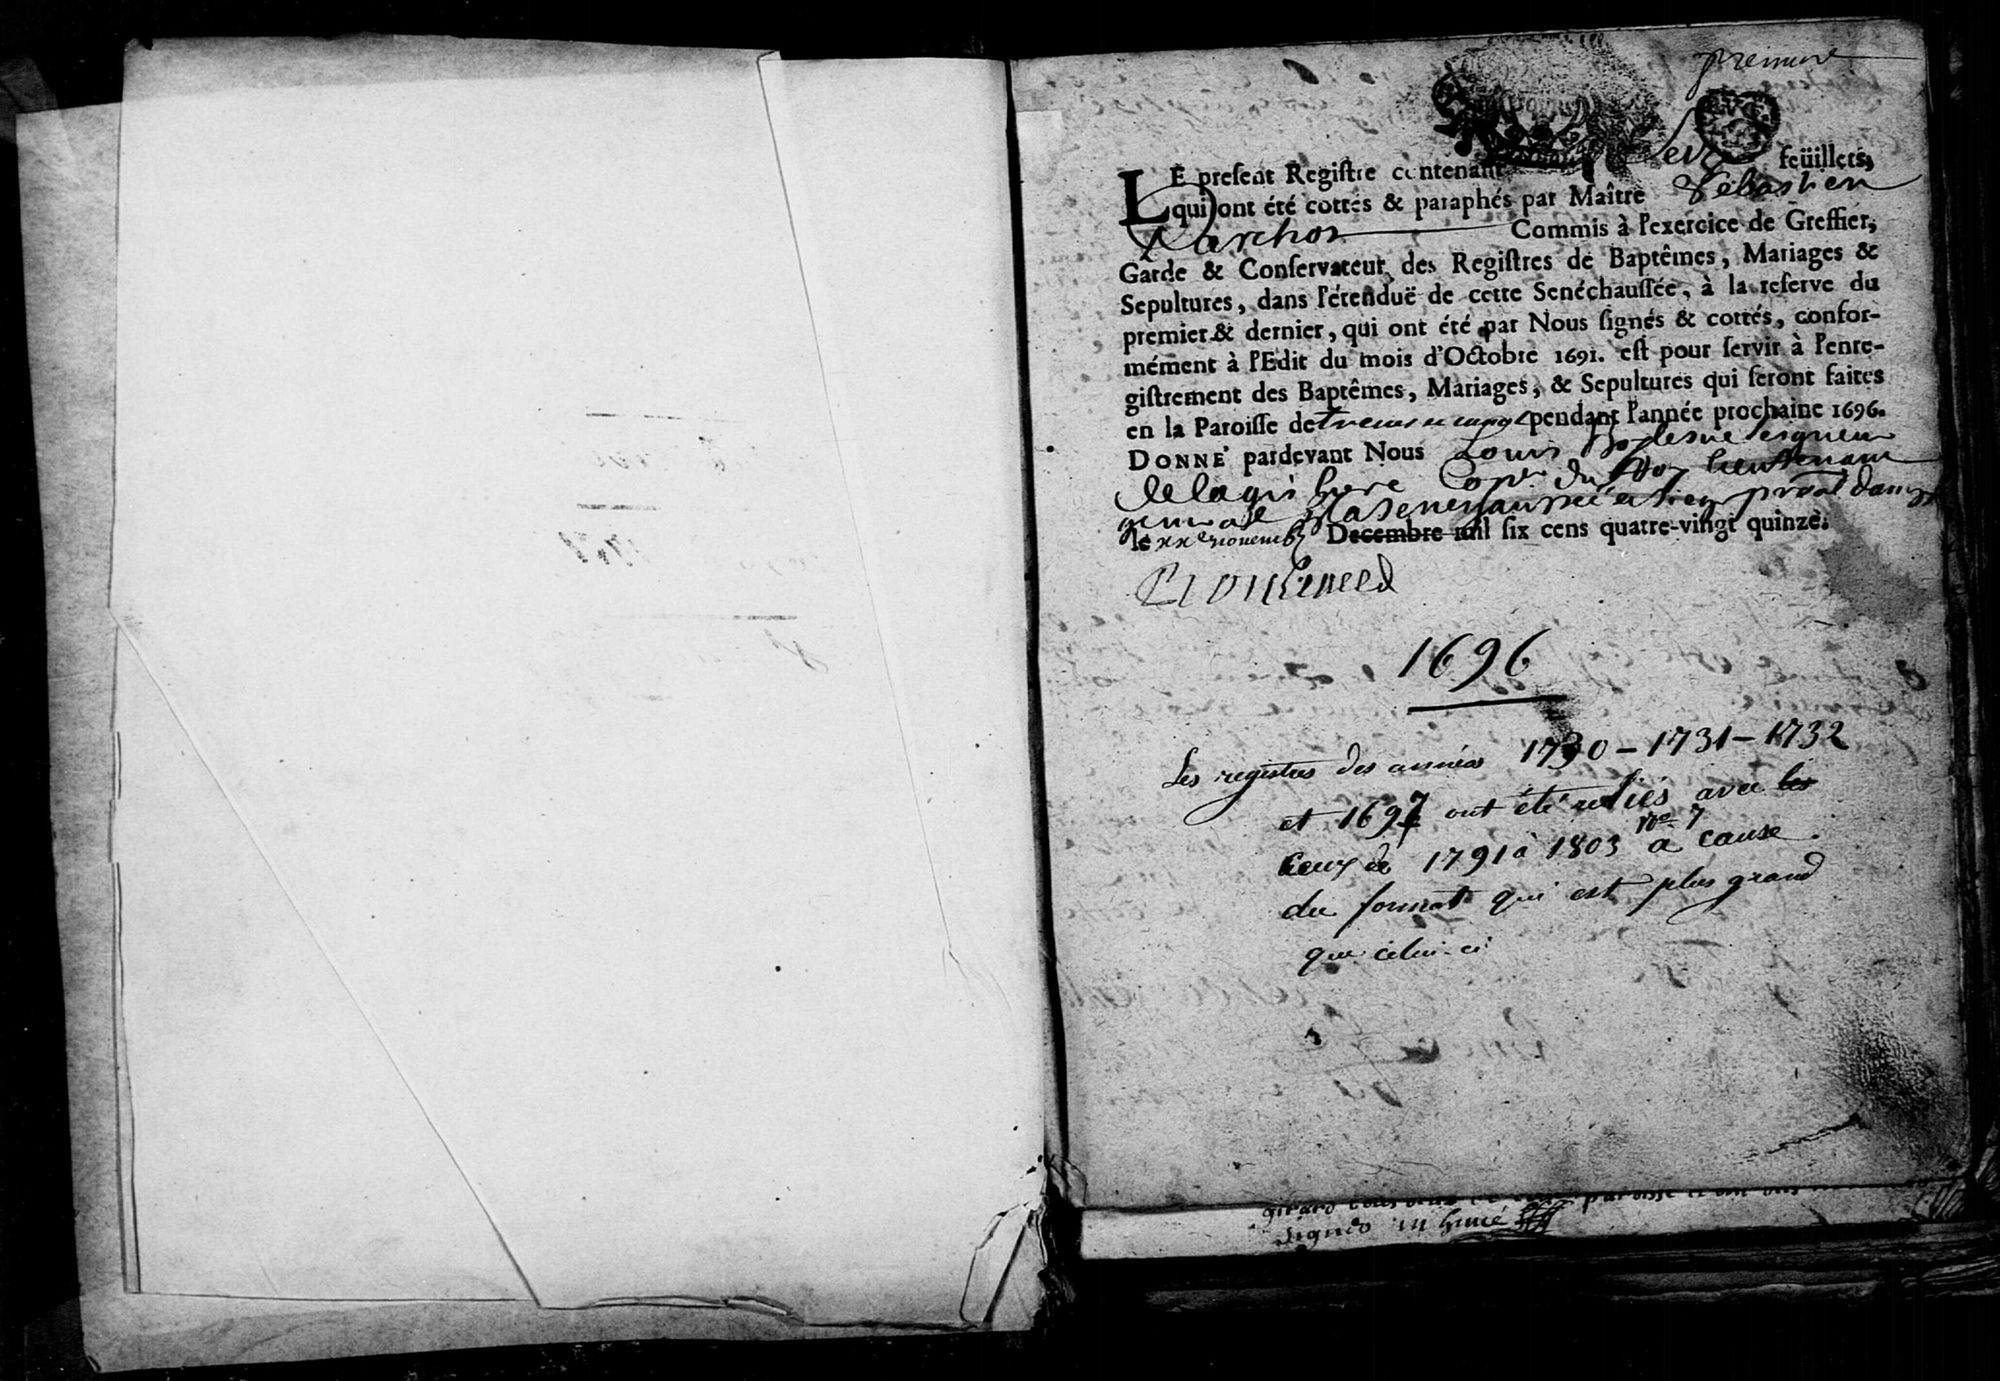 premier
LE present Registre contenant feüillets,
qui ont été cottés & paraphés par Maître Sebastien
Marchor Commis à l'exercice de Greffier,
Garde & Conservateur des Registres de Baptêmes, Mariages &
Sepultures, dans l'étenduë de cette Senéchaussée, à la reserve du
premier & dernier, qui ont été par Nous signés & cottés, confor-
mément à l'Edit du mois d'Octobre 1691. est pour servir à l'enre-
gistrement des Baptêmes, Mariages, & Sepultures qui seront faites
en la Paroisse de pendant l'année prochaine 1696.
DONNÉ pardevant Nous Louis seigneur
Du Roy lieutenant
general
le xxe novemb Decembre mil six cens quatre-vingt quinze.
1696
Les registres des années 1730 - 1731 - 1732
et 1697 ont été reliés avec les
ceux de 1791 à 1803 No 7 à cause
du format qui est plus grand
que celui-ci
signes